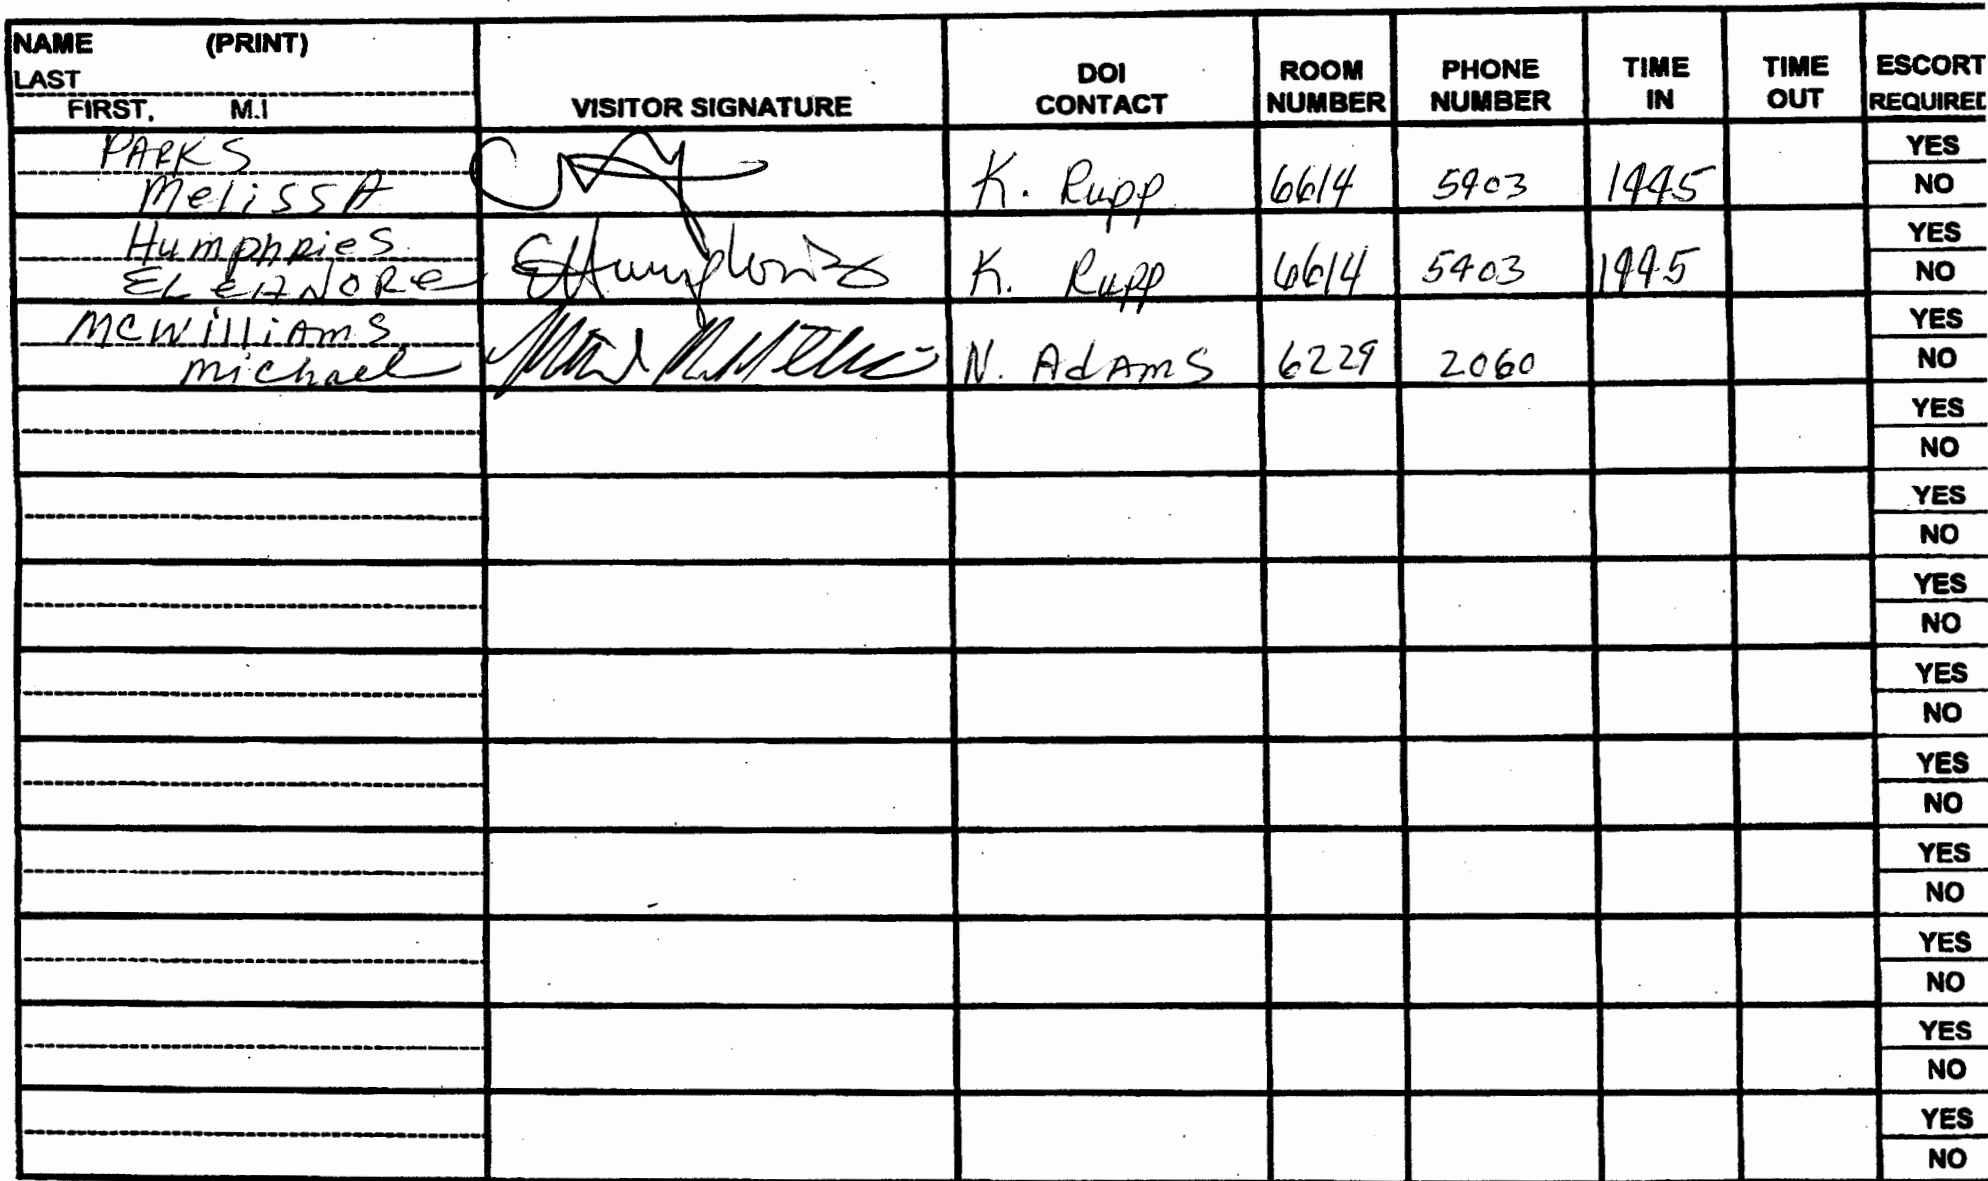 NAME (PRINT)
LAST
FIRST, M.I
VISITOR SIGNATURE
DOI CONTACT
ROOM NUMBER
PHONE NUMBER
TIME IN
TIME OUT
ESCORT REQUIRED
PARKS
MelissA K. Rupp 6614 YES
NO
HumphrieS
ELEANORe K. Rupp 6614 YES
NO
MCWilliAmS
michael N. AdAmS 6229 2060 YES
NO
YES
NO
YES
NO
YES
NO
YES
NO
YES
NO
YES
NO
YES
NO
YES
NO
YES
NO